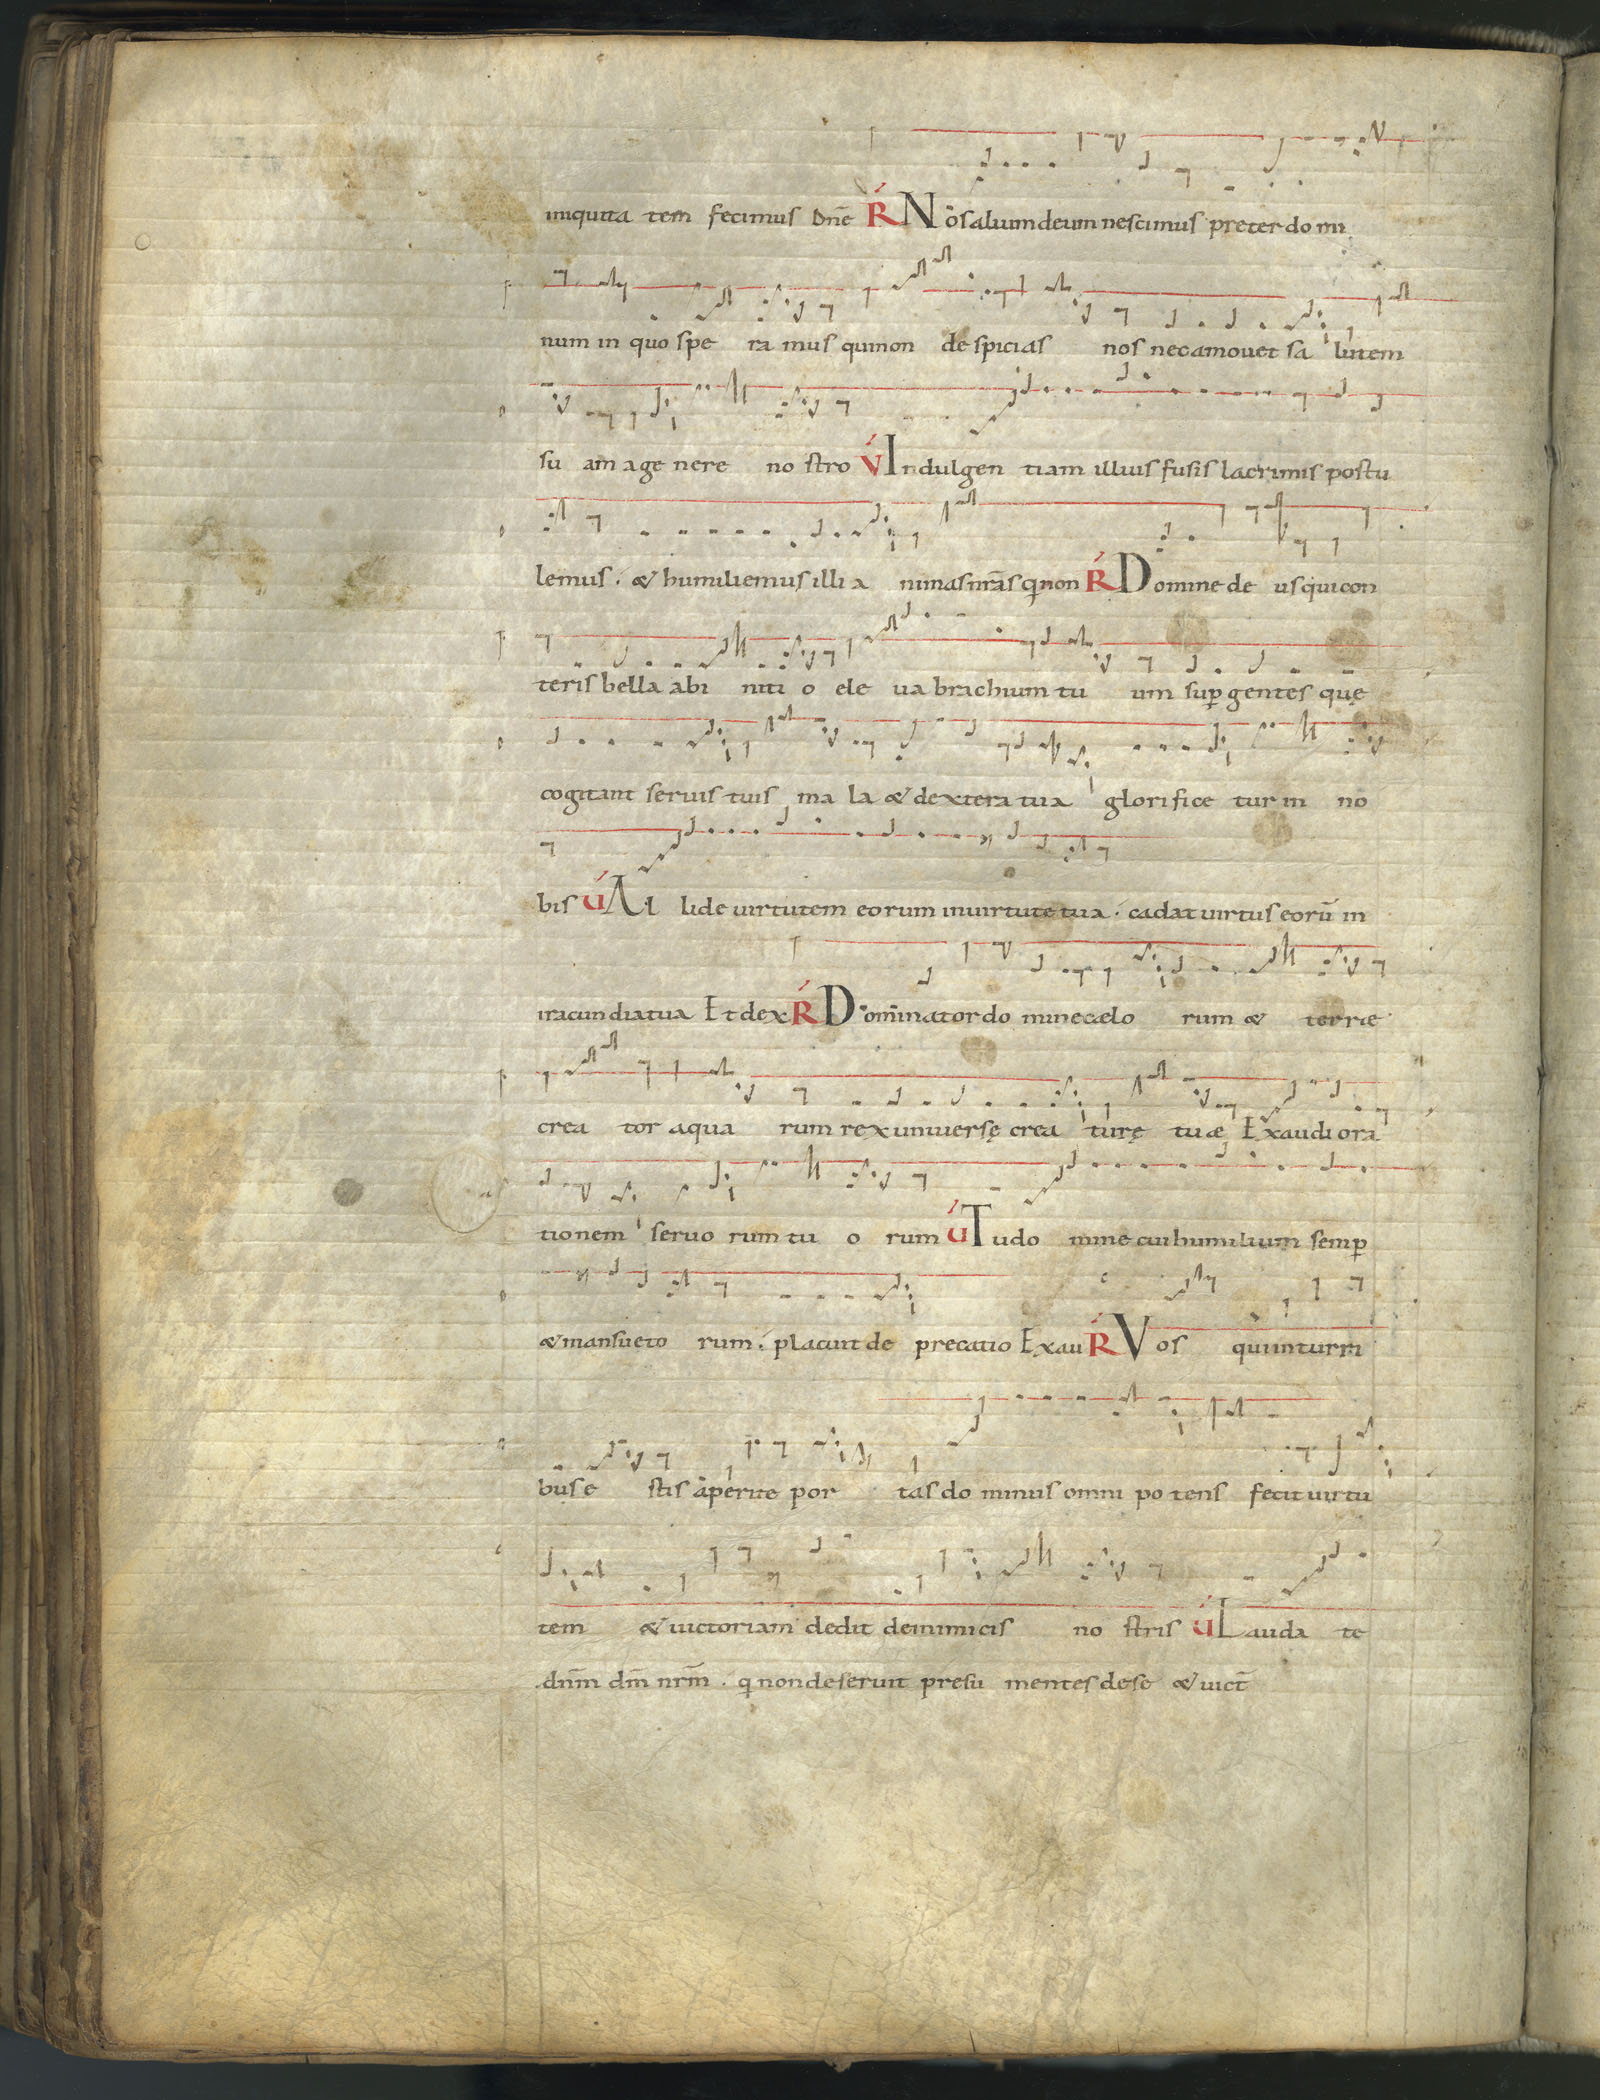 iniquita tem fecimus dn̄e Ŕ Nos alium deum nescimus preter do mi
num in quo spe ra mus qui non de spicias nos nec amovet sa lutem
su am a ge nere no stro V́ Indulgen tiam illius fusis lacrimis postu
lemus. & humiliemus illi a nimas nr̄as q non Ŕ Domine de us qui con
teris bella ab i niti o ele ua brachium tu um sup gentes quę
cogitant seruis tuis ma la & dextera tua glorifice tur in no
bis Ú Al lide uirtutem eorum in uirtute tua. cadat uirtus eorū in
iracundia tua Et dex Ŕ Dominator do mine caelo rum & terrae
crea tor aqua rum rex uniuersę crea turę tuae Exaudi ora
tionem seruo rum tu o rum Ú Tu do mine cui humilium semp
& mansueto rum. placuit de precatio Exau Ŕ Vos qui in turri
bus e stis aperite por tas do minus omni po tens fecit uirtu
tem & uictoriam dedit de inimicis no stris Ú Lauda te
dnm̄ dm̄ nrm̄. q non deseruit presu mentes de se & uict̄